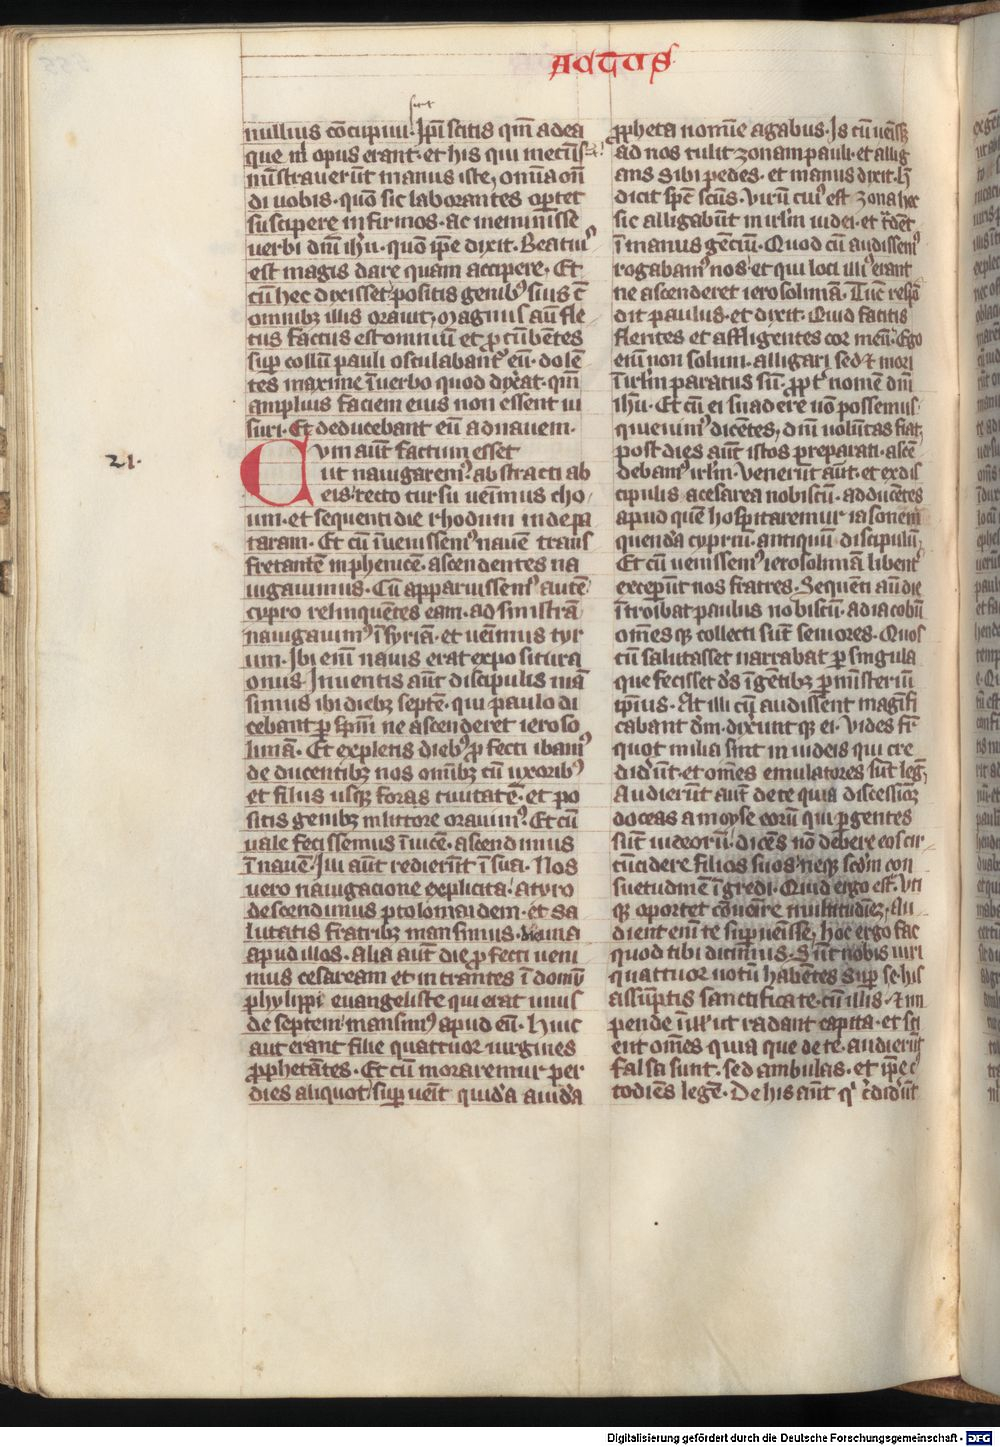 ACTUS
sicut
nullius cōcupiui. Ip̄i scitis qm̄ ad ea
que m̄ opus erant. et his qui mecū s̄t
mīstrauerūt manus iste, om̄ia on̄
di uobis. quō sic laborantes oꝑtet
suscipere infirmos. ac meminisse
uerbi dn̄i ih̄u. quō ip̄e dixit. Beatiꝰ
est magis dare quam accipere. Et
cū hec dixisset positis genibꝰ suis cū
omnibꝫ illis orauit, Magnus aūt fle
tus factus est omniū et ꝓcūbētes
suꝑ collū pauli osculabantꝰ eū. dolē
tes maxime ī uerbo quod dixerat. qm̄
amplius faciem eius non essent ui
suri. Et deducebant eū ad nauem.
21.
Cvm aūt factum esset
ut nauigaremꝰ abstracti ab
eis. recto cursu uenimus cho
um. et sequenti die rhodum inde pa
taram. Et cū īuenissemꝰ nauē trans
fretantē in phenicē. ascendentes na
uigauimus. Cū apparuissemꝰ autē
cypro relinquētes eam. ad sinistrā
nauigauimꝰ ī syriā. et uēimus tyr
um. Ibi enī nauis erat expositura
onus. Inuentis aūt discipulis mā
simus ibi diebꝫ septē. qui paulo di
cebant ꝑ sp̄m ne ascenderet ieroso
limā. Et expletis diebꝰ ꝓfecti ibamꝰ
deducentibꝫ nos om̄ibꝫ cū uxoribꝰ
et filiis usqꝫ foras ciuitatē. et po
sitis genibꝫ in littore orauimꝰ. Et cū
uale fecissemus īuicē. ascendimus
ī nauē. Illi aūt redierūt ī sua. Nos
uero nauigacione explicita. a tyro
descendimus ptolomaidem. et sa
lutatis fratribꝫ mansimus. die una
apud illos. Alia aūt die ꝓfecti ueni
mus cesaream et intrantes ī domū
phylippi euangeliste qui erat unus
de septem mansimꝰ apud eū. Huic
aut erant filie quattuor uirgines
ꝓphetātes. Et cū moraremur per
dies aliquot suꝑuēit quidā a iudea
ꝓpheta nomīe agabus. Is cū uēisꝫ
ad nos tulit zonam pauli. et allig
ans sibi pedes. et manus dixit. Hec
dicit sp̄c scūs. Virū cuiꝰ est zona hec
sic alligabūt in irl̄m iudei. et tradēt
ī manus gēciū. Quod cū audissemꝰ
rogabamꝰ nos et qui loci illiꝰ erant
ne ascenderet ierosolimā. Tūc respō
dit paulus. et dixit. Quid facitis
flentes et affligentes cor meū. Ego
enī non solum. alligari sed ⁊ mori
ī irl̄m paratus sū. ꝓpt̄ nomē dn̄i
ih̄u. Et cū ei suadere nō possemus.
quieuimꝰ dicētes, dn̄i uolūtas fiat.
post dies aūt istos preparati. ascē
debamꝰ irl̄m. Venerūt aūt. et ex dis
cipulis a cesarea nobiscū. adducētes
apud quē hospitaremur iasonem
quendā cypriū. antiquū discipulū.
Et cū uenissemꝰ ierosolimā libent̄
exceperūt nos fratres. Sequēti aūt die
ītroibat paulus nobiscū. ad iacobū
om̄es qꝫ collecti sūt seniores. Quos
cū salutasset narrabat ꝑ singula
que fecisset ds̄ ī gētibꝫ ꝑ mīsteriū
ipīus. At illi cū audissent magīfi
cabant dm̄. dixerūt qꝫ ei. Vides fr̄
quot milia sint in iudeis qui cre
diderūt. et om̄es emulatores sūt leḡ.
Audierūt aūt de te quia discessionē
doceas a moyse eorū qui ꝑ gentes
sūt iudeorū. dicēs nō debere eos cir
cūcidere filios suos neqꝫ scd̄m con
suetudinē īgredi. Quid ergo est. Vti
qꝫ oportet cōuenīre multitudinē. Au
dient enī te suꝑuēisse, hoc ergo fac
quod tibi dicimus. Sūt nobis uiri
quattuor uotū habētes suꝑ se. his
assūptis sanctifica te. cū illis. ⁊ im
pende ī illis ut radant capita. et sci
ent om̄es quia que de te. audierūt
falsa sunt. sed ambulas. et ip̄e cꝰ
todiēs legē. De his aūt qͥ crediderūt
Digitalisierung gefördert durch die Deutsche Forschungsgemeinschaft - DFG